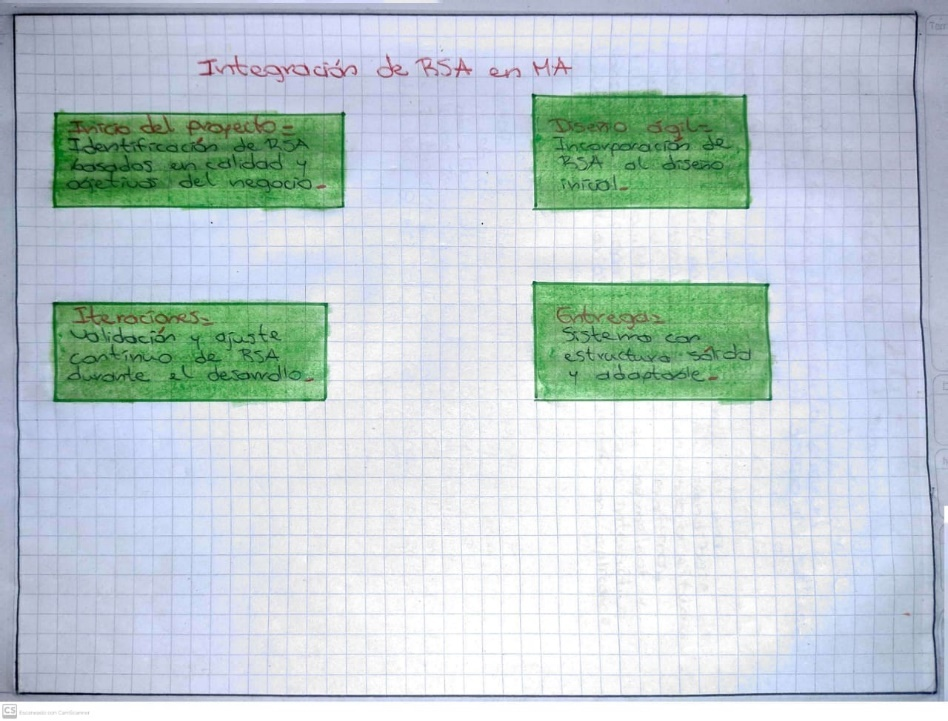 Integración de RSA en MA
Inicio del proyecto=
Identificación de RSA
basados en calidad y
objetivos del negocio.
Diseño ágil=
Incorporación de
RSA al diseño
inicial.
Iteraciones=
Validación y ajuste
continuo de RSA
durante el desarrollo.
Entrega=
Sistema con
estructura sólida
y adaptable.
CS Escaneado con CamScanner